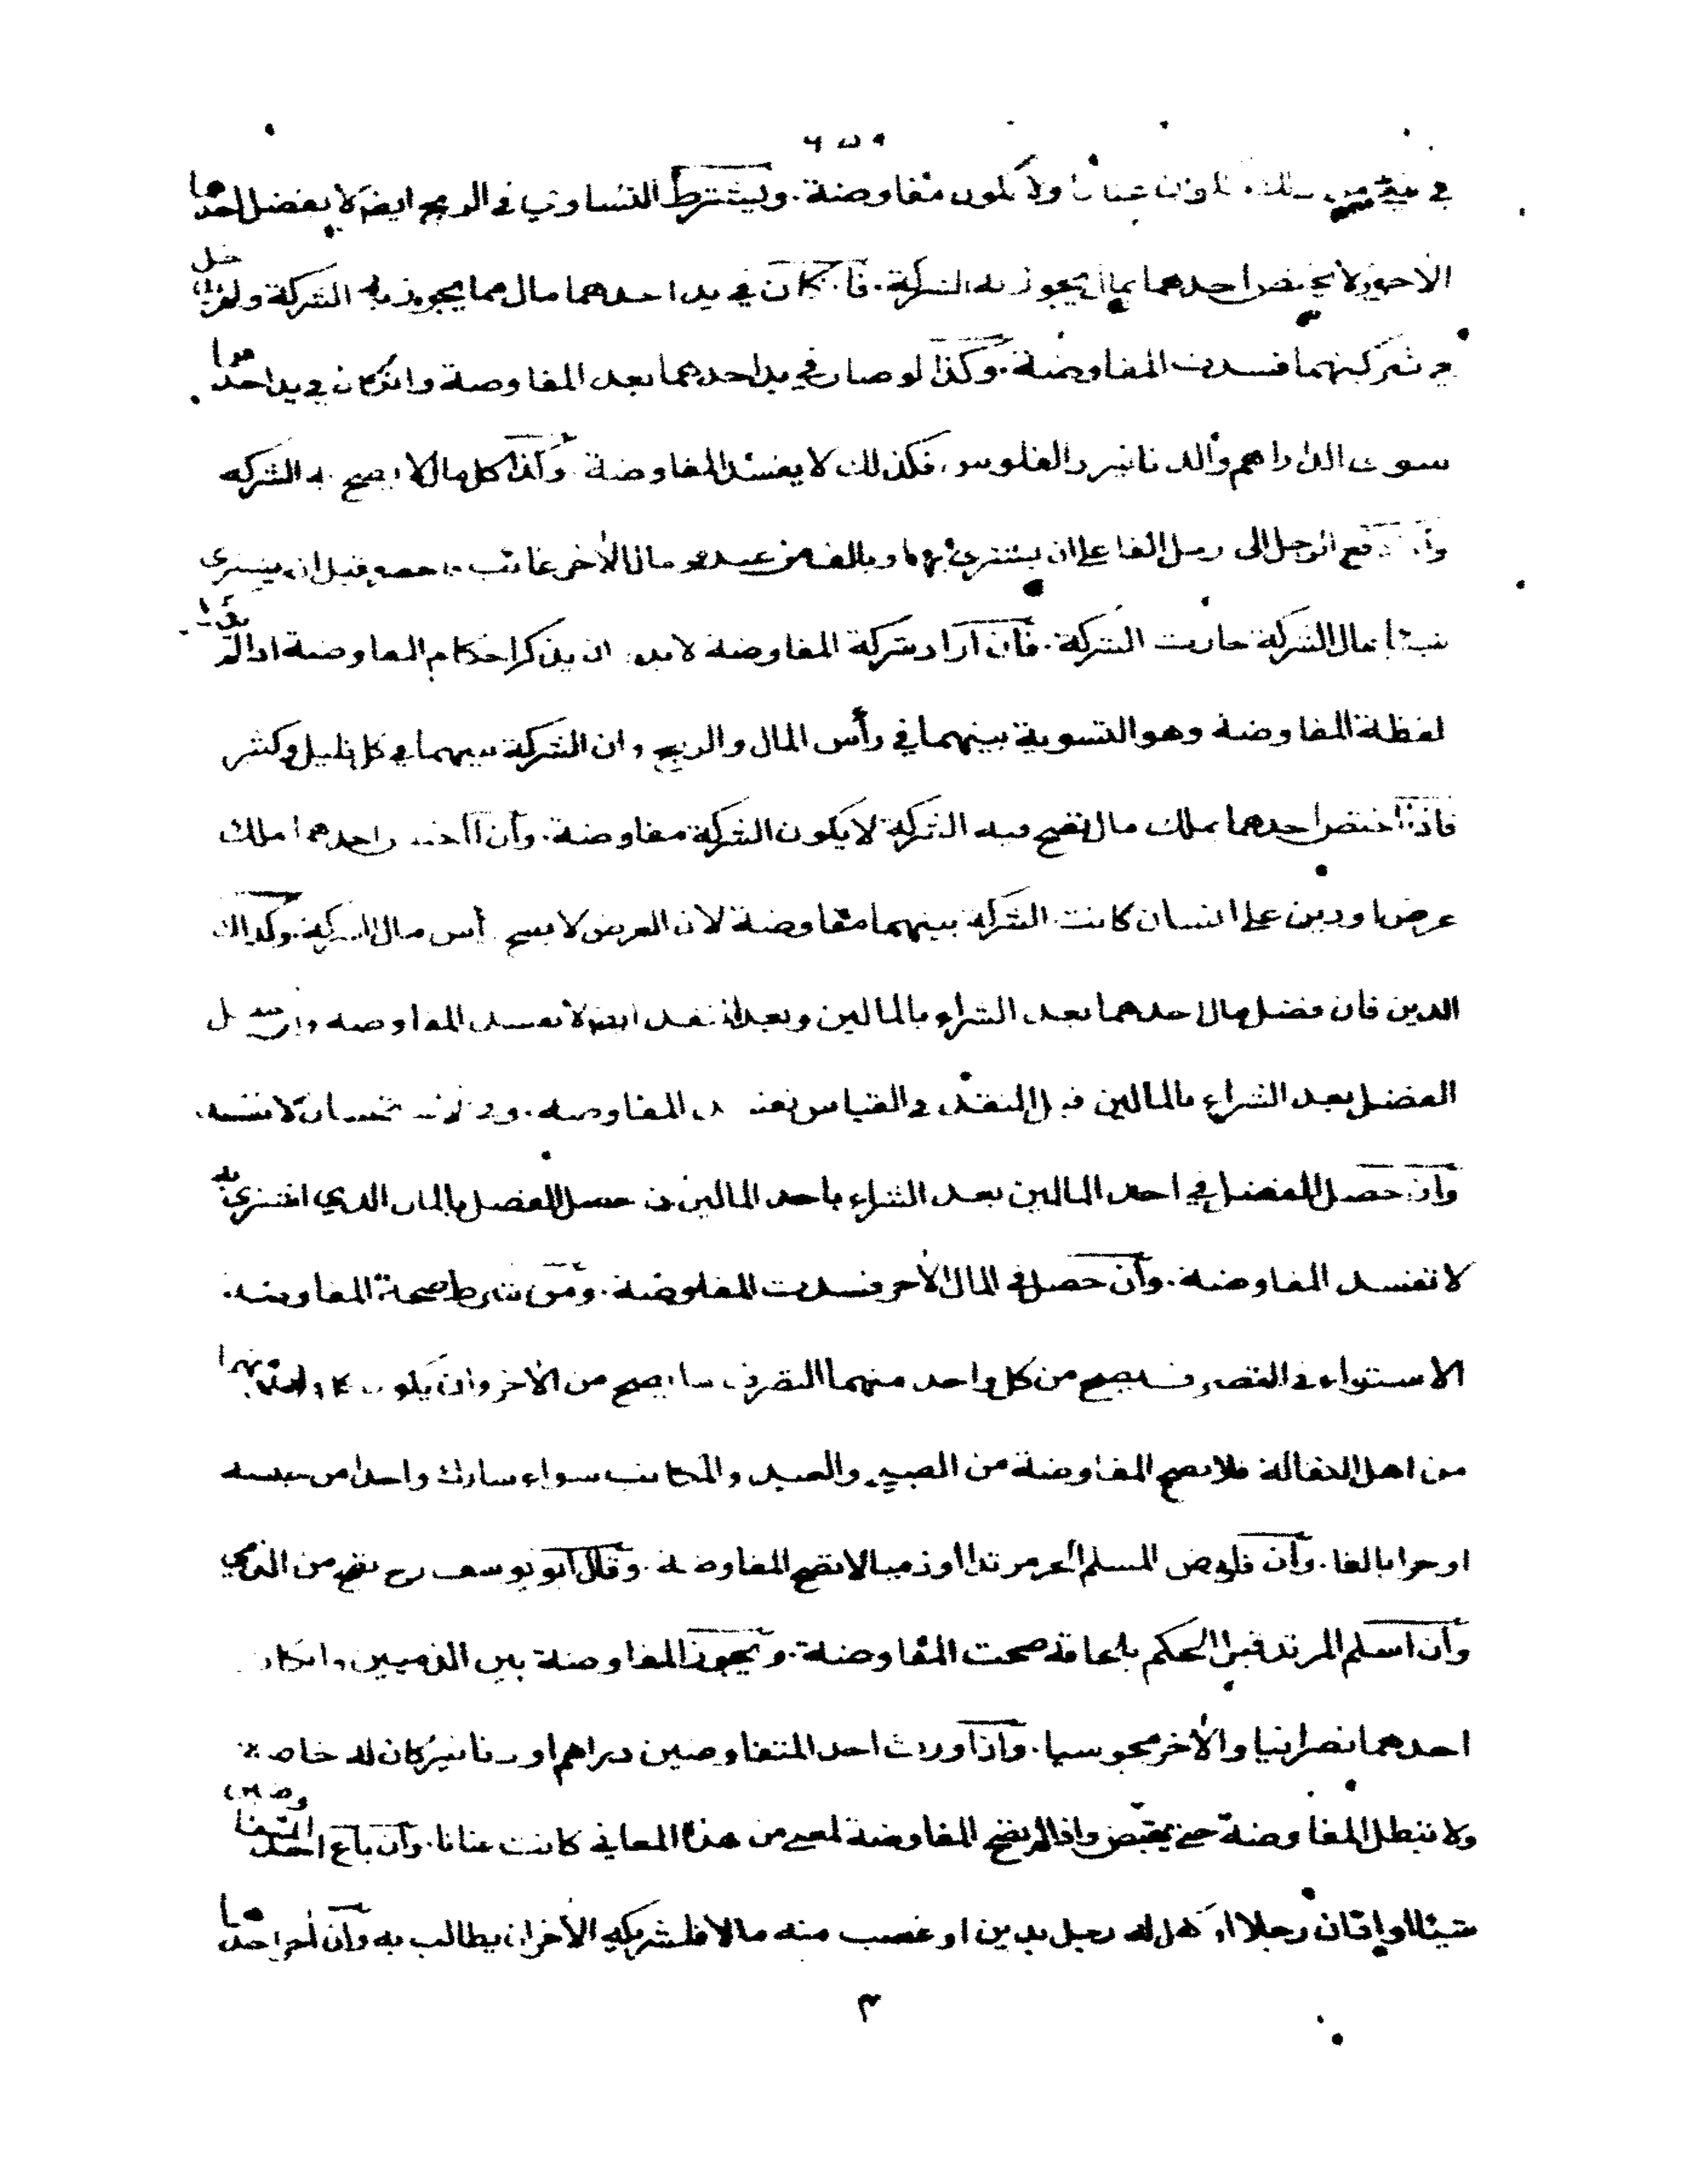 في شيء من ذلك تكون عنانا ولا تكون مفاوضة. ويشترط التساوي في الربح ايضا لا يفضل احدهما
الاخر ولا يختص احدهما بمال يجوز به الشركة. فان كان في يد احدهما مال مما يجوز به الشركة ولم يدخل
في شركتهما فسدت المفاوضة. وكذا لو صار في يد احدهما بعد المفاوضة وان كان في يد احدهما
سوى الدراهم والدنانير والفلوس فكذلك لا يفسد المفاوضة وكذا كل مال لا يصح به الشركه
وان دفع الرجل الى رجل الفا على ان يشتري بها وبالف من عنده ومال الأخر غائب حضر قبل ان يشترى
شيئا بمال الشركة جازت الشركة. فان اراد شركة المفاوضة لابد ان يذكر احكام المفاوضة اذا لم
لفظة المفاوضة وهو التسوية بينهما في رأس المال والربح وان الشركة بينهما في كل قليل وكثير
فاذا اختص احدهما بملك مال تصح فيه الشركة لا يكون الشركة مفاوضة. وان احدهما ملك
عرضا او دين على انسان كانت الشركة بينهما مفاوضة لان العرض لا يصح رأس مال الشركة. وكذلك
الدين فان فضل مال احدهما بعد الشراء بالمالين وبعد النقد ايضا لا تفسد المفاوضه وان حصل
الفضل بعد الشراء بالمالين قبل النقد في القياس تفسد المفاوضه. وفي الاستحسان لا تفسد
وان حصل الفضل في احد المالين بعد الشراء باحد المالين حصل الفضل بالمال الذي اشترى به
لا تفسد المفاوضة. وان حصل في المال الأخر فسدت المفاوضة. ومن شرط صحة المفاوضه.
الاستواء في التصرف يصح من كل واحد منهما التصرف ما يصح من الأخر وان يكون كل واحد منهما
من اهل الكفالة فلا تصح المفاوضة من الصبي والعبد والمكاتب سواء شارك واحدا من جنسه
او حرا بالغا. وان فاوض المسلم الحر مرتدا او ذميا لا تصح المفاوضة. وقال ابو يوسف رح تصح من الذمي
وان اسلم المرتد قبل الحكم بلحاقه صحت المفاوضة. ويجوز المفاوضة بين الذميين وان كان
احدهما نصرانيا والأخر مجوسيا. واذا ورث احد المتفاوضين دراهم او دنانير كان له خاصة
ولا تبطل المفاوضة حتى يقبض واذا لم تصح المفاوضة لمعنى من هذه المعاني كانت عنانا. وان باع احد المتفاوضين
شيئا او ادان رجلا او كفل له رجل بدين او غصب منه مالا فلشريكه الأخر ان يطالب به وان اجر احدهما